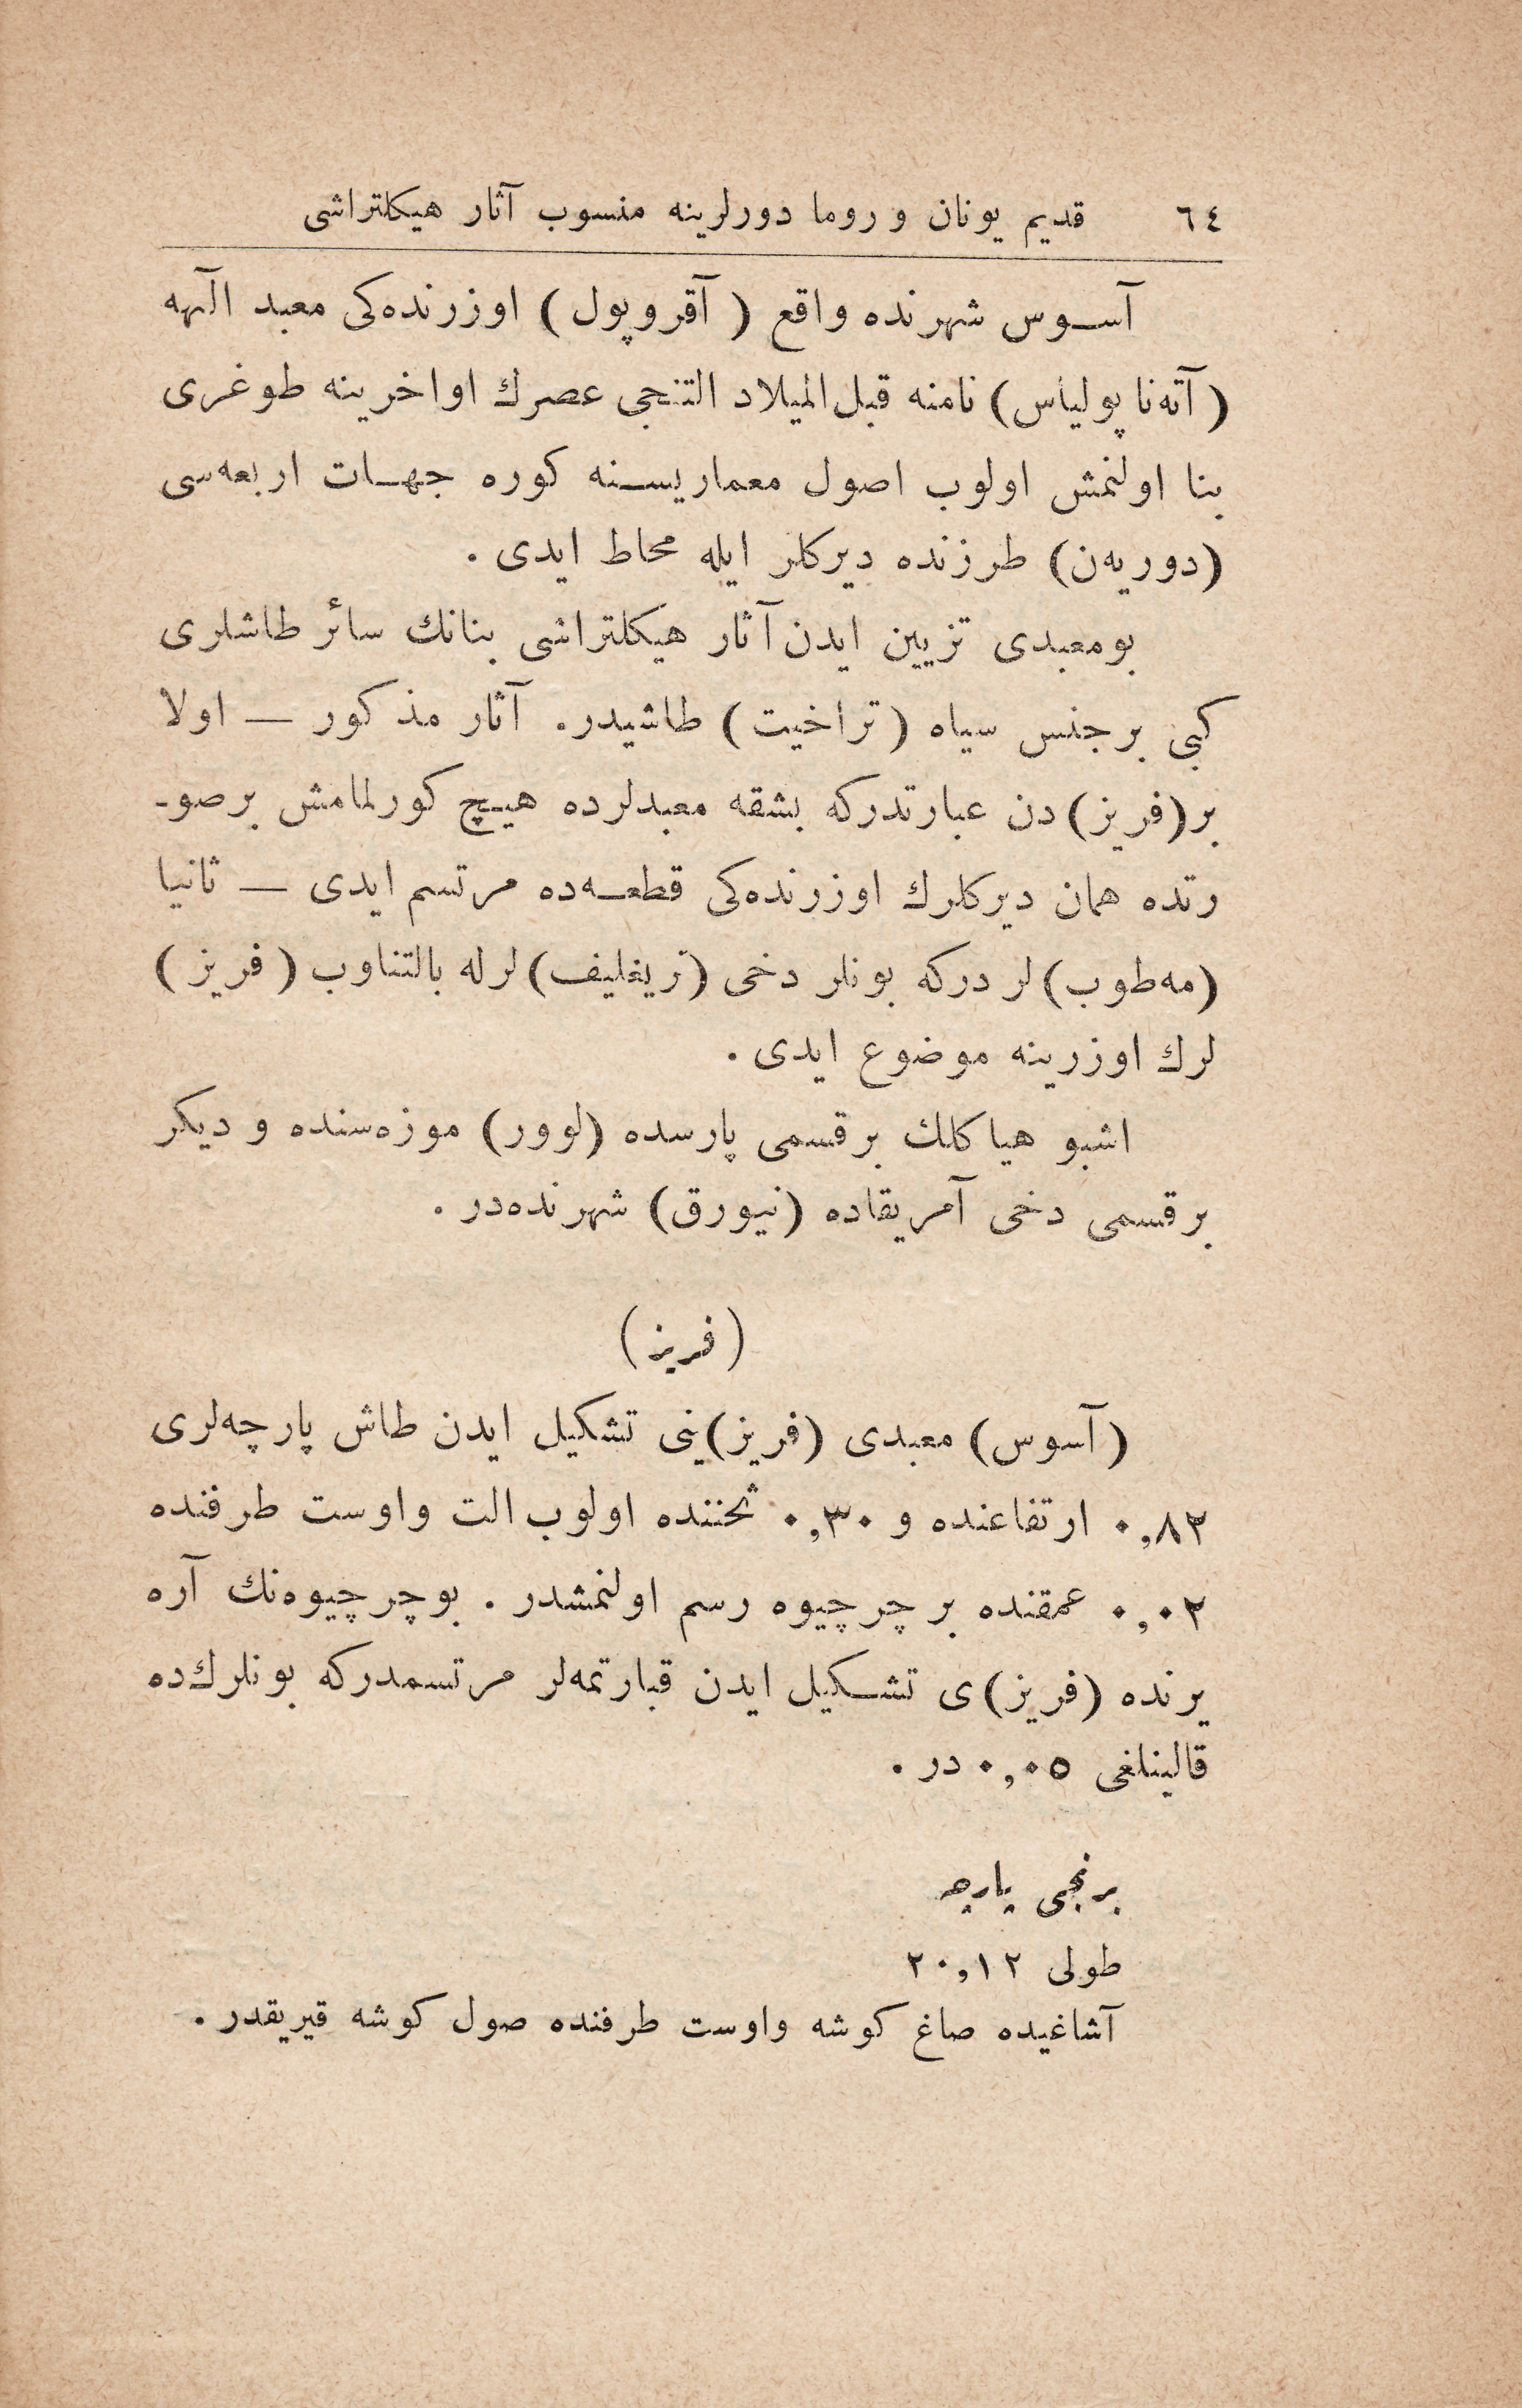 ٦٤ قديم يونان و روما دورلرينه منسوب آثار هيكلتراشى
آسوس شهرنده واقع ( آقروپول ) اوزرنده‌كى معبد الٓهه
( آتەنا پولياس ) نامنه قبل الميلاد التنجى عصرك اواخرينه طوغرى
بنا اولنمش اولوب اصول معماريسنه كوره جهات اربعه‌سى
(دوريەن) طرزنده ديركلر ايله محاط ايدى .
بو معبدى تزيين ايدن آثار هيكلتراشى بنانك سائر طاشلرى
كبى بر جنس سياه ( تراخيت ) طاشيدر. آثار مذكور — اولا
بر (فريز) دن عبارتدركه بشقه معبدلرده هيچ كورلمامش بر صو-
رتده همان ديركلرك اوزرنده‌كى قطعه‌ده مرتسم ايدى — ثانيا
(مه‌طوب) لر دركه بونلر دخى (تريغليف) لرله بالتناوب ( فريز )
لرك اوزرينه موضوع ايدى .
اشبو هياكلك بر قسمى پارسده (لوور) موزه‌سنده و ديكر
بر قسمى دخى آمريقاده (نيورق) شهرنده‌در .
(فريز)
( آسوس ) معبدى (فريز)ينى تشكيل ايدن طاش پارچه‌لرى
٠,٨٢ ارتفاعنده و ٠,٣٠ ثخننده اولوب الت واوست طرفنده
٠,٠٢ عمقنده بر چرچيوه رسم اولنمشدر . بو چرچيوه‌نك آره
يرنده (فريز)ى تشكيل ايدن قبارتمه‌لر مرتسمدركه بونلرك‌ده
قالينلغى ٠,٠٥ در .
برنجى پارچه
طولى ٢٠,١٢
آشاغيده صاغ كوشه واوست طرفنده صول كوشه قيريقدر .